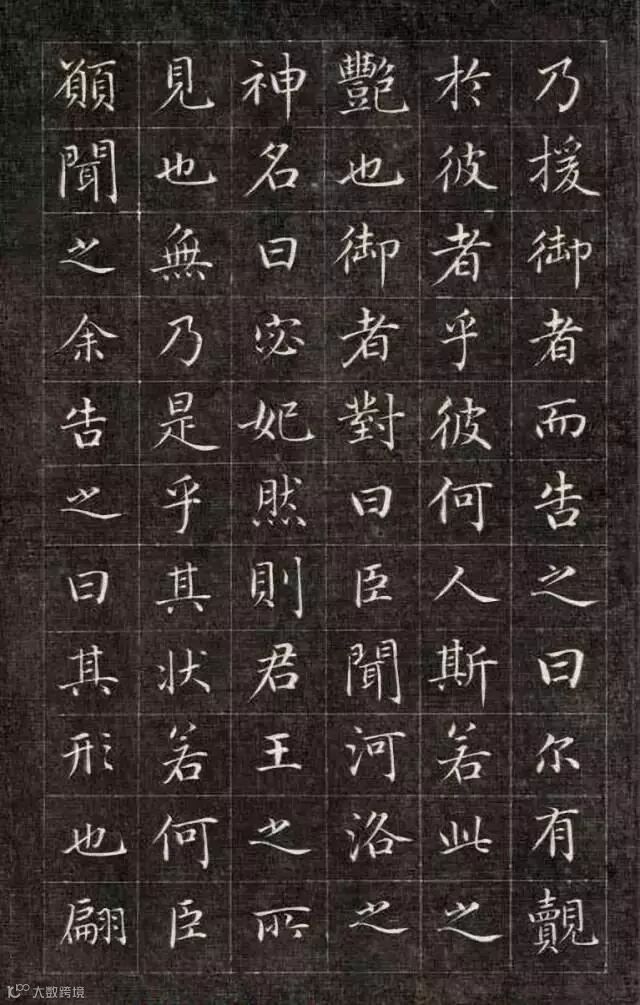 乃援御者而告之曰尔有覿
於彼者乎彼何人斯若此之
艷也御者對曰臣聞河洛之
神名曰宓妃然則君王之所
見也無乃是乎其状若何臣
願聞之余告之曰其形也翩
大数跨境